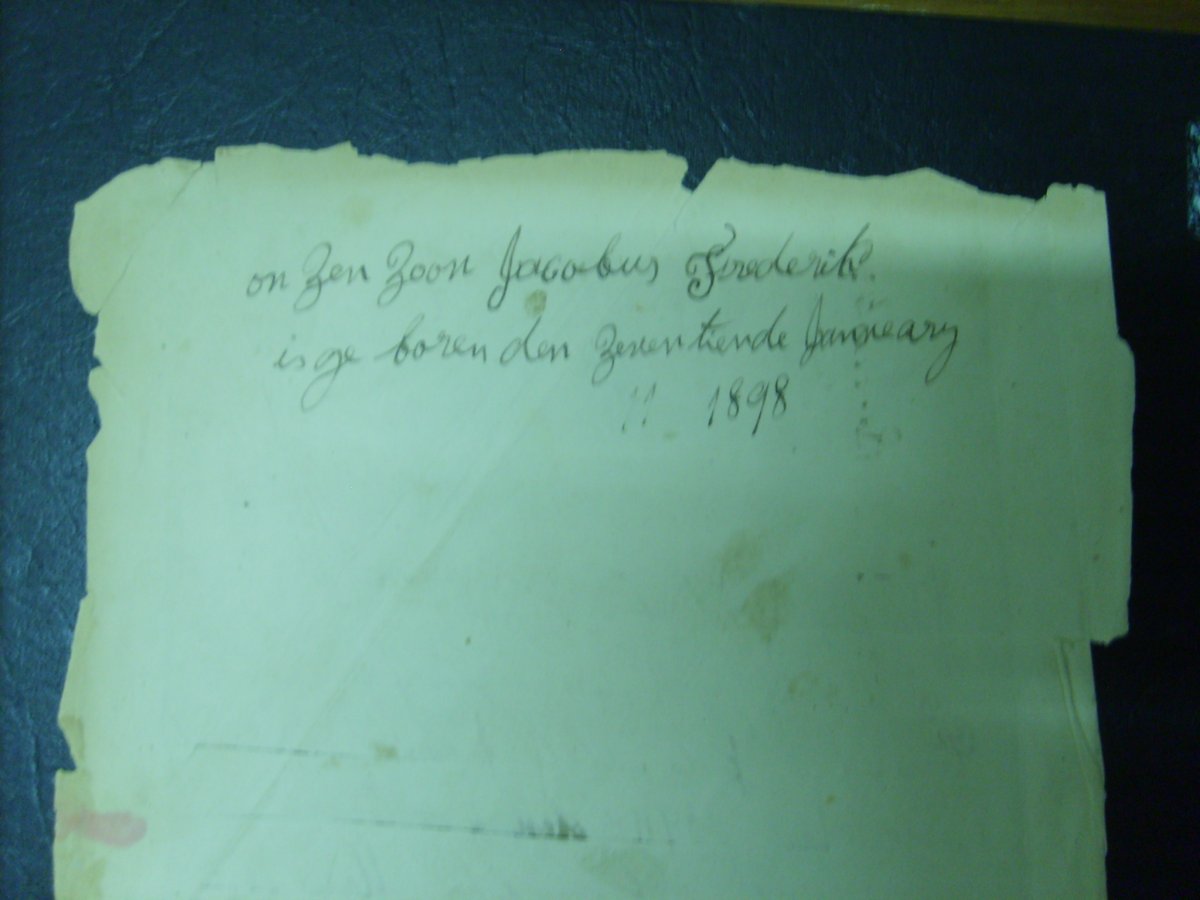 on Zen Zoon Jacobus Frederik.
is ge boren den Zeven tiende Janueary
11 1898